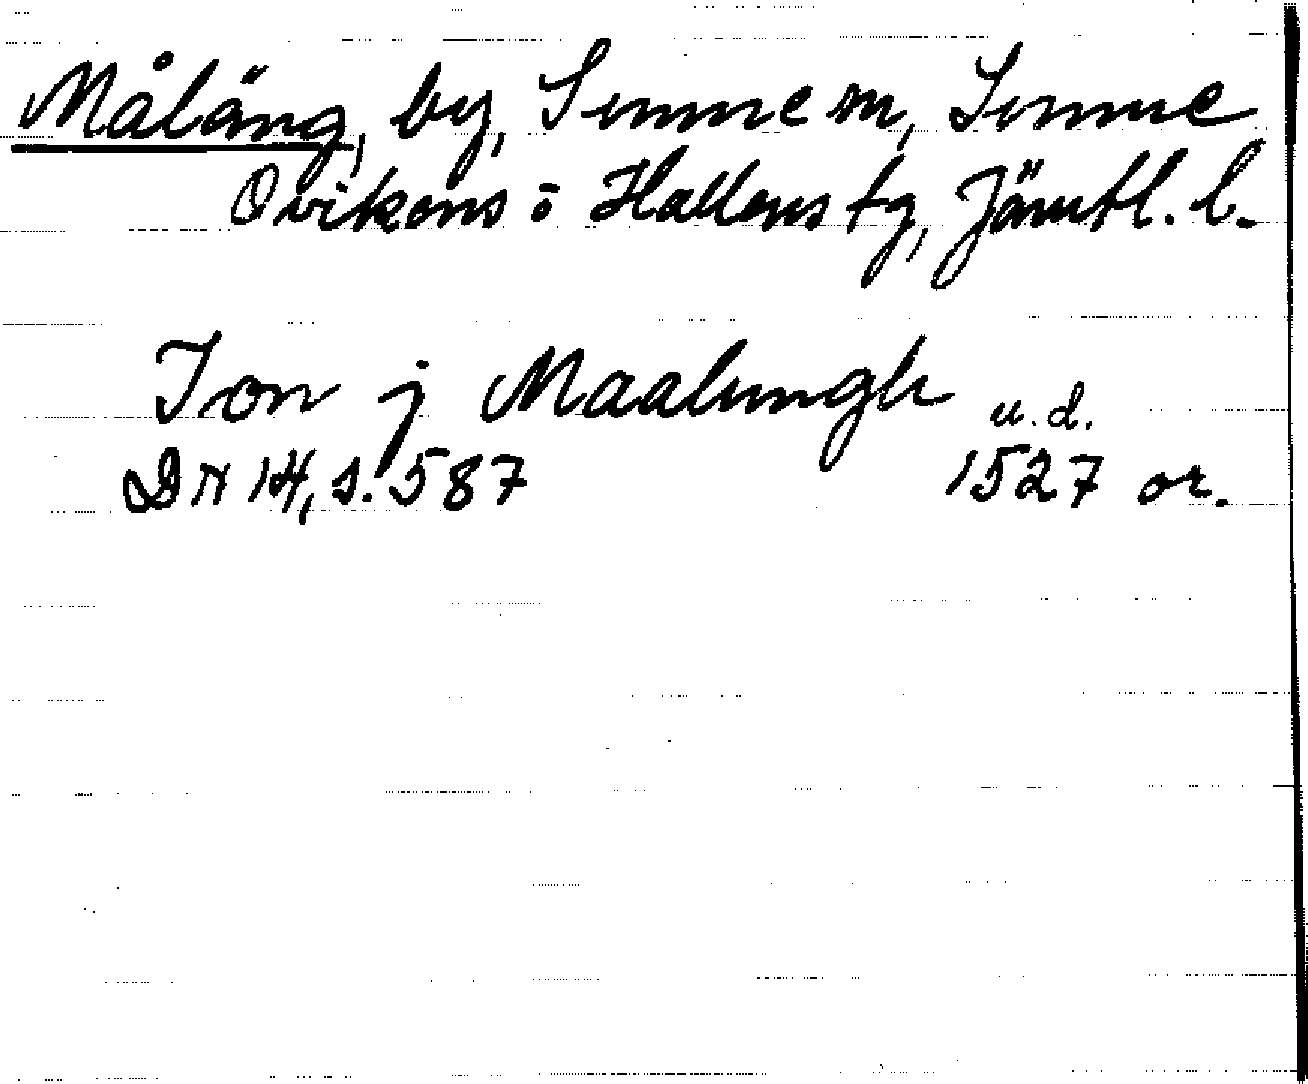 Måläng, by, Sunne sn, Sunne
Ovikens o Hallens tg, Jämtl. l.
Ion j Maalungh u.d.
DN 14, s. 587 1527 or.